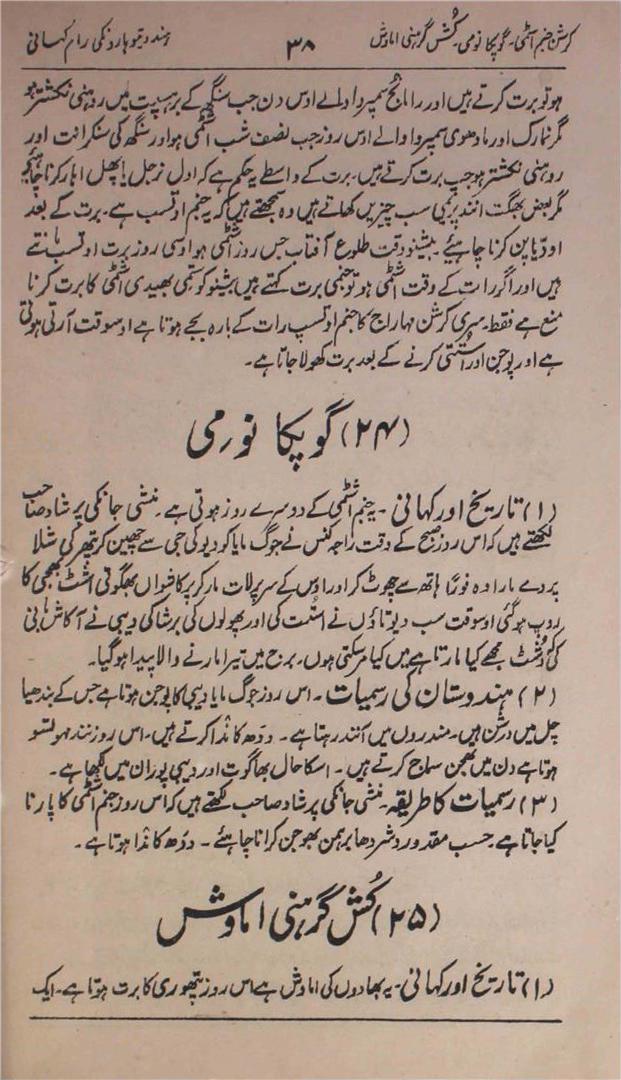 کرشن جنم اشٹمی۔ گوپکا نومی۔ کُش گرہنی اماوش ۳۸ ہندو تیوہارونکی رام کہانی
ہو تو برت کرتے ہیں اور رامانج سمپردا والے اوس دن جب سنگھ کے برہسپت میں روہنی نکشتر ہو
مگر نمارک اور مادھوی سمپردا والے اوس روز جب نصف شب اشٹمی ہو اور سنگھ کی سنکرانت اور
روہنی نکشتر ہو جب برت کرتے ہیں۔ برت کے واسطے یہ حکم ہے کہ اول نرجل یا پھل اہار کرنا چاہئے
مگر بعض بھگت انند پریمی سب چیزیں کھاتے ہیں وہ سمجھتے ہیں کہ یہ جنم اوتسب ہے۔ برت کے بعد
اودیاپن کرنا چاہیئے۔ بیشنو وقت طلوع آفتاب جس روز اشٹمی ہو اوسی روز برت اوتسب مانتے
ہیں اور اگر رات کے وقت اشٹمی ہو تو جنمی برت کہتے ہیں بشنو کو سپتمی بھیدی اشٹمی کا برت کرنا
منع ہے فقط۔ سری کرشن مہاراج کا جنم اوتسب رات کے بارہ بجے ہوتا ہے اوسوقت آرتی ہوتی
ہے اور پوجن اور استتی کرنے کے بعد برت کھولا جاتا ہے۔
(۲۴) گوپکا نورمی
(۱) تاریخ اور کہانی۔ یہ جنم اشٹمی کے دوسرے روز ہوتی ہے۔ منشی جانکی پرشاد صاحب
لکھتے ہیں کہ اس روز صبح کے وقت راجہ کنس نے جوگ مایا کو دیوکی جی سے چھین کر پتھر کی شلا
پر دے مارا وہ فوراً ہاتھ سے چھوٹ کر اور اوس کے سر پر لات مار کر پرکاشواں بھگوتی اشٹ بھجی کا
روپ ہوگئی اوسوقت سب دیوتاؤں نے استت کی اور پھولوں کی برشا کی دیبی نے آکاش بانی
کی دُشٹ مجھے کیا مارتا ہے میں کیا مر سکتی ہوں۔ برج میں تیرا مارنے والا پیدا ہوگیا۔
(۲) ہندوستان کی رسمیات۔ اس روز جوگ مایا دیبی کا پوجن ہوتا ہے جس کے بندھیا
چل میں درشن ہیں۔ مندروں میں آنند رہتا ہے۔ ددھ کاندا کرتے ہیں۔ اس روز نند مہوتسو
ہوتا ہے دن میں بھجن سماج کرتے ہیں۔ اسکا حال بھاگوت اور دیبی پوران میں لکھا ہے۔
(۳) رسمیات کا طریقہ۔ منشی جانکی پرشاد صاحب لکھتے ہیں کہ اس روز جنم اشٹمی کا پارنا
کیا جاتا ہے۔ حسب مقدور و شردھا برہمن بھوجن کرانا چاہئے۔ ددھ کاندا ہوتا ہے۔
(۲۵) کُش گرہنی اماوش
(۱) تاریخ اور کہانی۔ یہ بھادوں کی اماوش ہے اس روز پتھوری کا برت ہوتا ہے۔ ایک